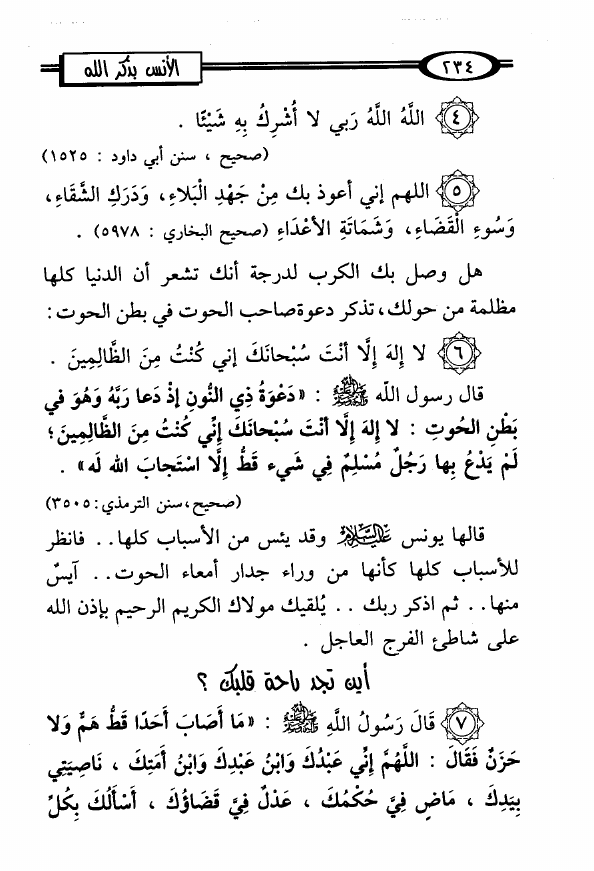 ٢٣٤
الأنس بذكر الله
٤ اللَّهُ اللَّهُ رَبي لا أُشْرِكُ بِهِ شَيْئًا .
(صحيح ، سنن أبي داود : ١٥٢٥)
٥ اللهم إني أعوذ بك مِنْ جَهْدِ الْبَلاءِ، وَدَرَكِ الشَّقَاءِ،
وَسُوءِ الْقَضَاءِ، وَشَمَاتَةِ الأعْدَاءِ (صحيح البخاري : ٥٩٧٨) .
هل وصل بك الكرب لدرجة أنك تشعر أن الدنيا كلها
مظلمة من حولك، تذكر دعوة صاحب الحوت في بطن الحوت:
٦ لا إلهَ إلَّا أنْتَ سُبْحانَكَ إني كُنْتُ مِنَ الظَّالِمِينَ .
قال رسول اللّه ﷺ : «دَعْوَةُ ذِي النُّونِ إذْ دَعا رَبَّهُ وَهُوَ في
بَطْنِ الحُوتِ : لا إلهَ إلَّا أنْتَ سُبْحانَكَ إِنِّي كُنْتُ مِنَ الظَّالِمِينَ؛
لَمْ يَدْعُ بِها رَجُلٌ مُسْلِمٌ فِي شَيء قَطُّ إلَّا اسْتَجابَ الله لَه» .
(صحيح،سنن الترمذي:٣٥٠٥)
قالها يونس عَلَيْهِ السَّلَام وقد يئس من الأسباب كلها.. فانظر
للأسباب كلها كأنها من وراء جدار أمعاء الحوت.. آيسٌ
منها.. ثم اذكر ربك .. يُلقيك مولاك الكريم الرحيم بإذن الله
على شاطئ الفرج العاجل .
أين تجد راحة قلبك ؟
٧ قَالَ رَسُولُ اللَّهِ ﷺ : «مَا أَصَابَ أَحَدًا قَطُّ هَمٌّ وَلا
حَزَنٌ فَقَالَ : اللَّهُمَّ إِنِّي عَبْدُكَ وَابْنُ عَبْدِكَ وَابْنُ أَمَتِكَ ، نَاصِيَتِي
بِيَدِكَ ، مَاضٍ فِيَّ حُكْمُكَ ، عَدْلٌ فِيَّ قَضَاؤُكَ ، أَسْأَلُكَ بِكُلِّ